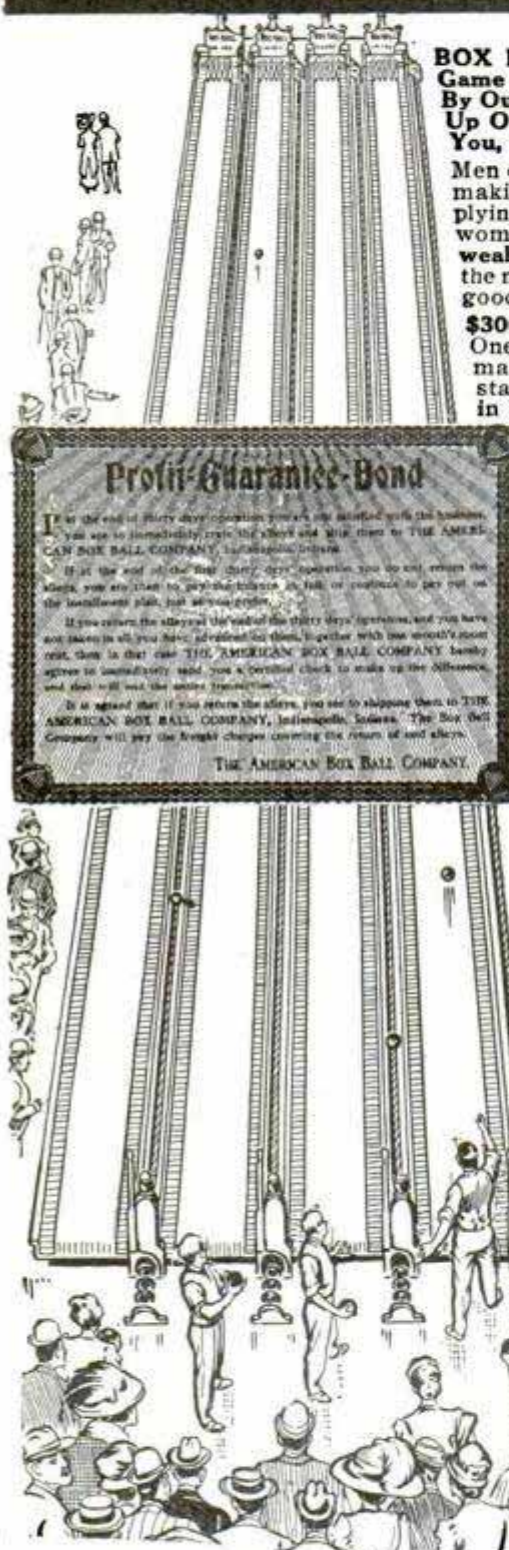 BOX
Game
By Ou
Up O
You,
Men
maki
plyin
wom
weal
the
good
$30
One
ma
sta
in
Profit-Guarantee-Bond
If at the end of thirty days' operation you are not satisfied with the business,
you are to immediately crate the alleys and ship them to THE AMERI-
CAN BOX BALL COMPANY, Indianapolis, Indiana.
If at the end of the first thirty days' operation you do not return the
alleys, you are then to pay the balance in full or continue to pay out on
the installment plan, just as you prefer.
If you return the alleys at the end of the thirty days' operation, and you have
not taken in all you have advanced on them, together with one month's room
rent, then in that case THE AMERICAN BOX BALL COMPANY hereby
agrees to immediately send you a certified check to make up the difference,
and that will end the entire transaction.
It is agreed that if you return the alleys, you see to shipping them to THE
AMERICAN BOX BALL COMPANY, Indianapolis, Indiana. The Box Ball
Company will pay the freight charges covering the return of said alleys.
THE AMERICAN BOX BALL COMPANY.